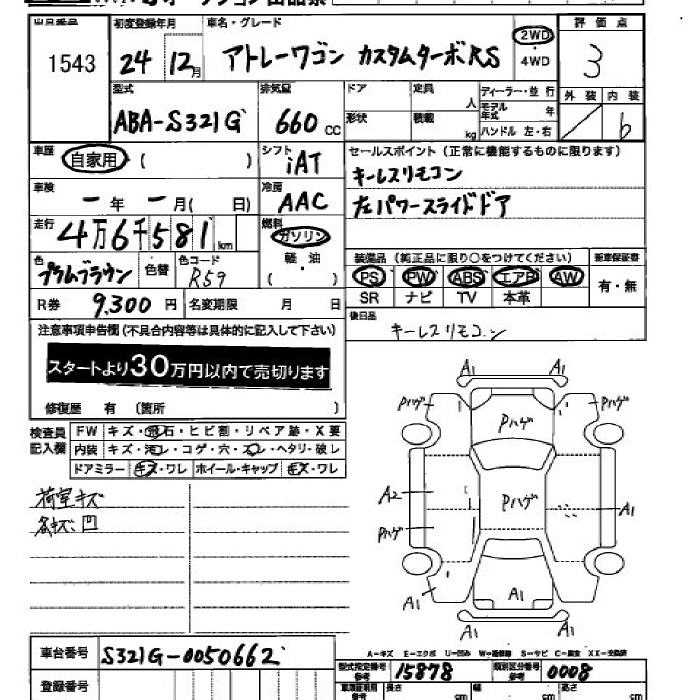 出品番号 初度登録年月 車名・グレード 評価点
1543 24 12月 アトレーワゴン カスタムターボRS 2WD ・ 4WD 3
型式 排気量 ドア 定員 人 ディーラー・並行 外装 内装
ABA-S321G 660 CC 形状 積載 kg モデル年式 年 ハンドル 左・右 b
車歴 自家用 ( ) シフト iAT セールスポイント(正常に機能するものに限ります)
キーレスリモコン
車検 ー年 ー月( 日) 冷房 AAC 左パワースライドドア
走行 4万6千581km 燃料 ガソリン
軽・油
( )
色 プラムブラウン 色替 色コード R59
装備品(純正品に限り○をつけてください) 新車保証書
PS PW ABS エアB AW 有・無
SR ナビ TV 本革
R券 9,300円 名変期限 月 日
後日品 キーレスリモコン
注意事項申告欄(不具合内容等は具体的に記入して下さい)
スタートより30万円以内で売切ります
修復歴 有 〔箇所 〕
検査員記入欄 FW キズ・飛石・ヒビ割・リペア跡・X要
内装 キズ・汚レ・コゲ・穴・スレ・ヘタリ・破レ
ドアミラー キズ・ワレ ホイール・キャップ キズ・ワレ
荷室キズ
各キズ、凹
A1 A1
Pハゲ Pハゲ Pハゲ
A2 Pハゲ A1
Pハゲ
A1 A1 A1
A1 A1
A-キズ E-エクボ U-凹み W-補修跡 S-サビ C-腐食 XX-交換済
車台番号 S321G-0050662
型式指定番号 参考 15878 類別区分番号 参考 0008
登録番号 長さ cm 幅 cm 高さ cm